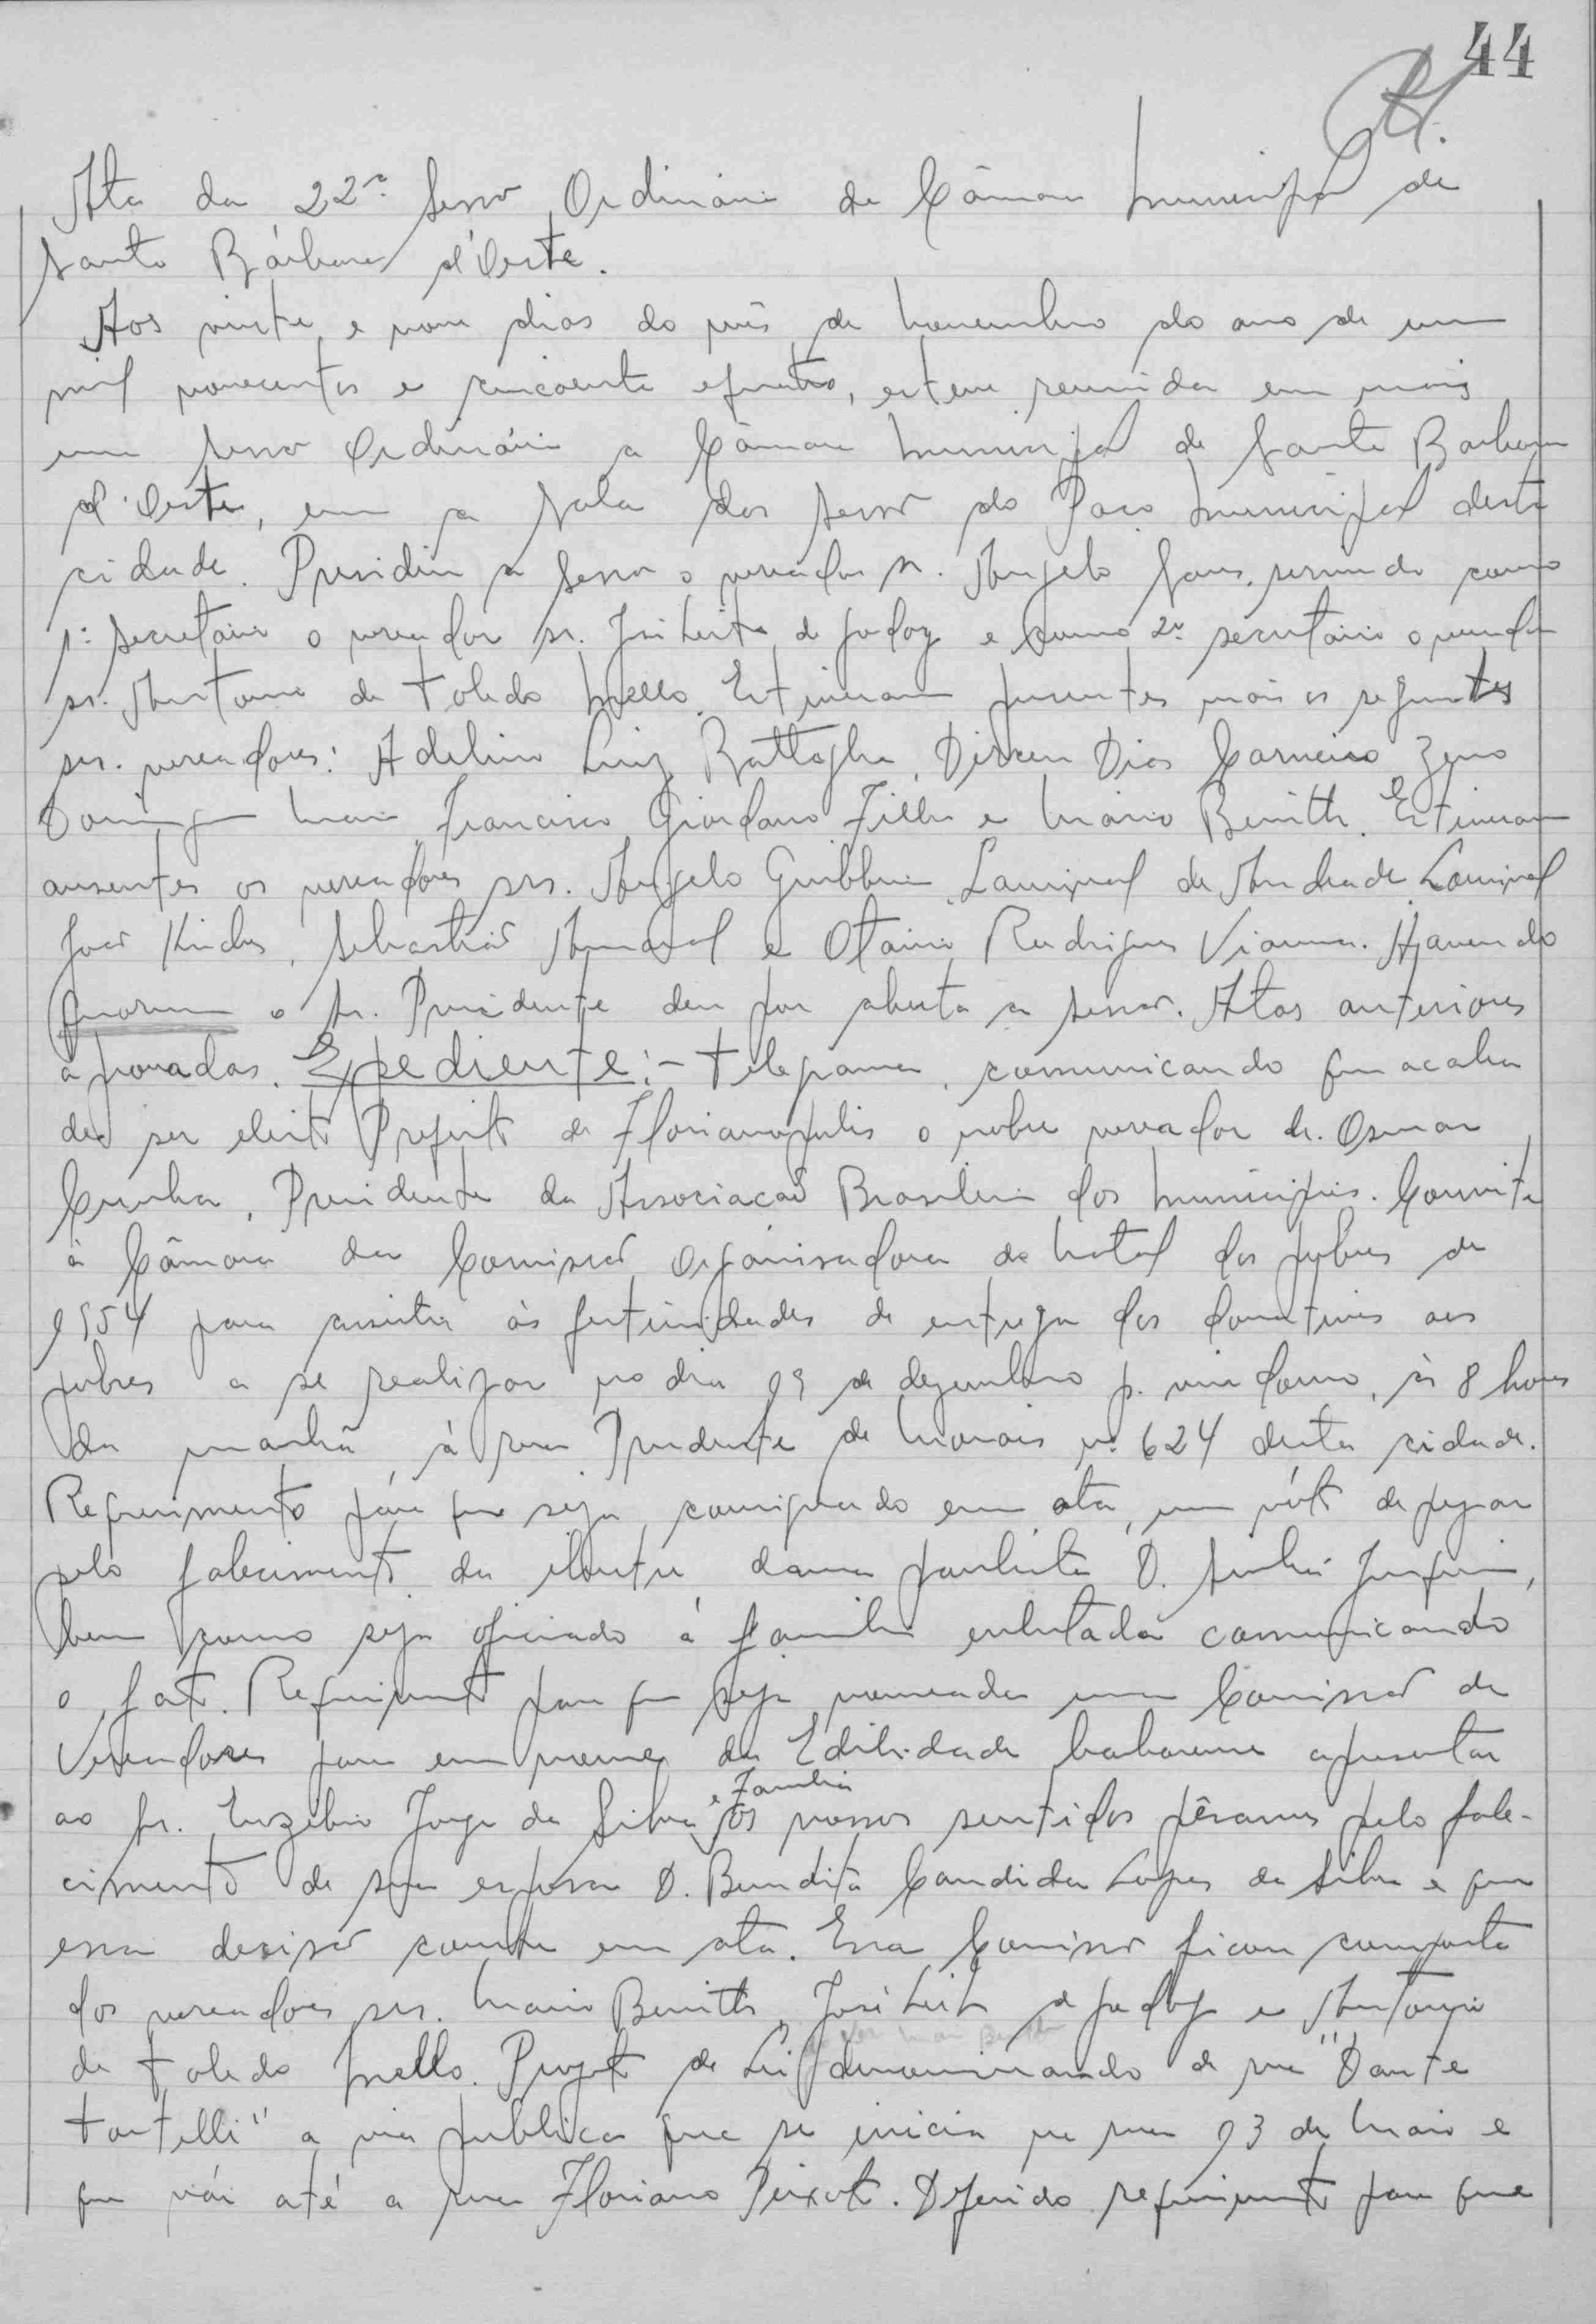 44
Ata da 22ª Sessão Ordinária da Câmara Municipal de
Santa Bárbara d'Oeste.
Aos vinte e nove dias do mês de Novembro do ano de um
mil novecentos e cincoenta e quatro, esteve reunida em mais
uma Sessão Ordinária a Câmara Municipal de Santa Barbara
d'Oeste, em a sala das Sessões do Paço Municipal desta
cidade. Presidiu a Sessão o vereador sr. Angelo Sans, servindo como
1º Secretario o vereador sr. José Leite de Godoy e como 2º secretário o vereador
sr. Antonio de Toledo Mello. Estiveram presentes mais os seguintes
srs. vereadores: Adelino Luiz Battaglia, Dirceu Dias Carneiro, Zeno
Domingos Maia, Francisco Giordano Filho e Mario Benith. Estiveram
ausentes os vereadores srs. Angelo Giubbina, Laurival de Andrade,
João, Sebastião Amaral e Otavio Rodrigues Vianna. Havendo
quorum o Sr. Presidente deu por aberta a sessão. Atas anteriores
aprovadas. Expediente:- Telegrama, comunicando que acaba
de ser eleito Prefeito de Florianopolis o nobre vereador dr. Osmar
Cunha, Presidente da Associação Brasileira dos Municipios. Convite
à Câmara da Comissão Organisadora do Natal dos pobres de
1954 para assistir às festividades de entrega dos donativos aos
pobres a se realizar no dia 19 de dezembro p. vindouro, às 8 horas
da manhã, à rua Prudente de Morais nº 624 desta cidade.
Requerimento para que seja consignado em ata, um vóto de pezar
pelo falecimento da ilustre dama paulista D. Sinhá Junqueira,
bem como seja oficiado á familia enlutada comunicando
o fato. Requerimento para que seja nomeada uma Comissão de
Vereadores para em nome da Edilidade barbarense apresentar
e Familia
ao Sr. Euzébio Jorge da Silva os nossos sentidos pêsames pelo fale-
cimento de sua esposa D. Benedita Candida Lopes da Silva e que
essa decisão conste em ata. Essa Comissão ficou composta
dos vereadores srs. Mario Benith, José Leite de Godoy e Antonio
do Ver. Mario Benith
de Toledo Mello. Projeto de Lei denominando de rua "Dante
Tortelli" a via publica que se inicia na rua 13 de Maio e
que vái até a rua Floriano Peixoto. Deferido requerimento para que